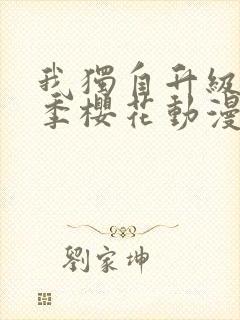 我獨自升級
季櫻花動漫
劉家坤